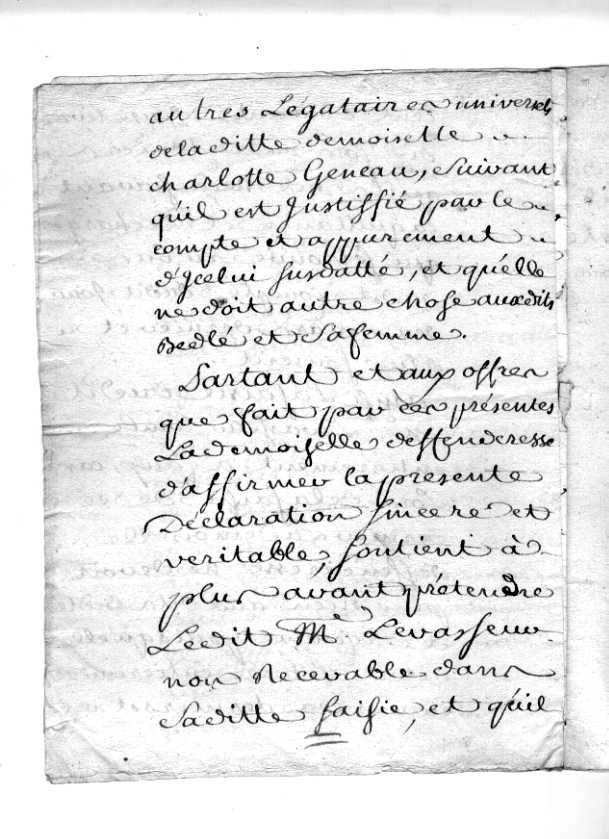 autres Légataires universels
de laditte demoiselle
charlotte Geneau, suivant
qu'il est Justiffié par le
compte et appurement
d'Jcelui susdatté, et qu'elle
ne doit autre chose auxdits
Bedlé et Sa femme.
Partant et aux offres
que fait par ces présentes
La demoiselle deffenderesse
d'affirmer la presente
Déclaration sincere et
veritable, soutient à
plus avant prétendre
Ledit Me. Levasseur
non Recevable dans
Saditte saisie, et qu'il